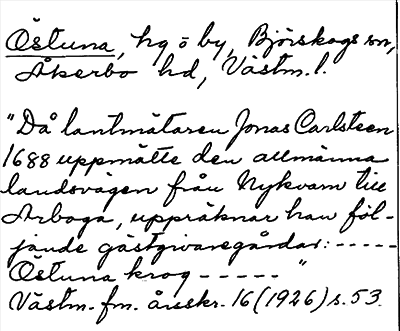 Östuna, hg o by, Björskogs sn,
Åkerbo hd, Västm. l.
"Då lantmätaren Jonas Carlsteen
1688 uppmätte den allmänna
landsvägen från Nykvarn till
Arboga, uppräknar han föl-
jande gästgivaregårdar: -----
Östuna krog ----- "
Västm. fm. årsskr. 16 (1926) s. 53.